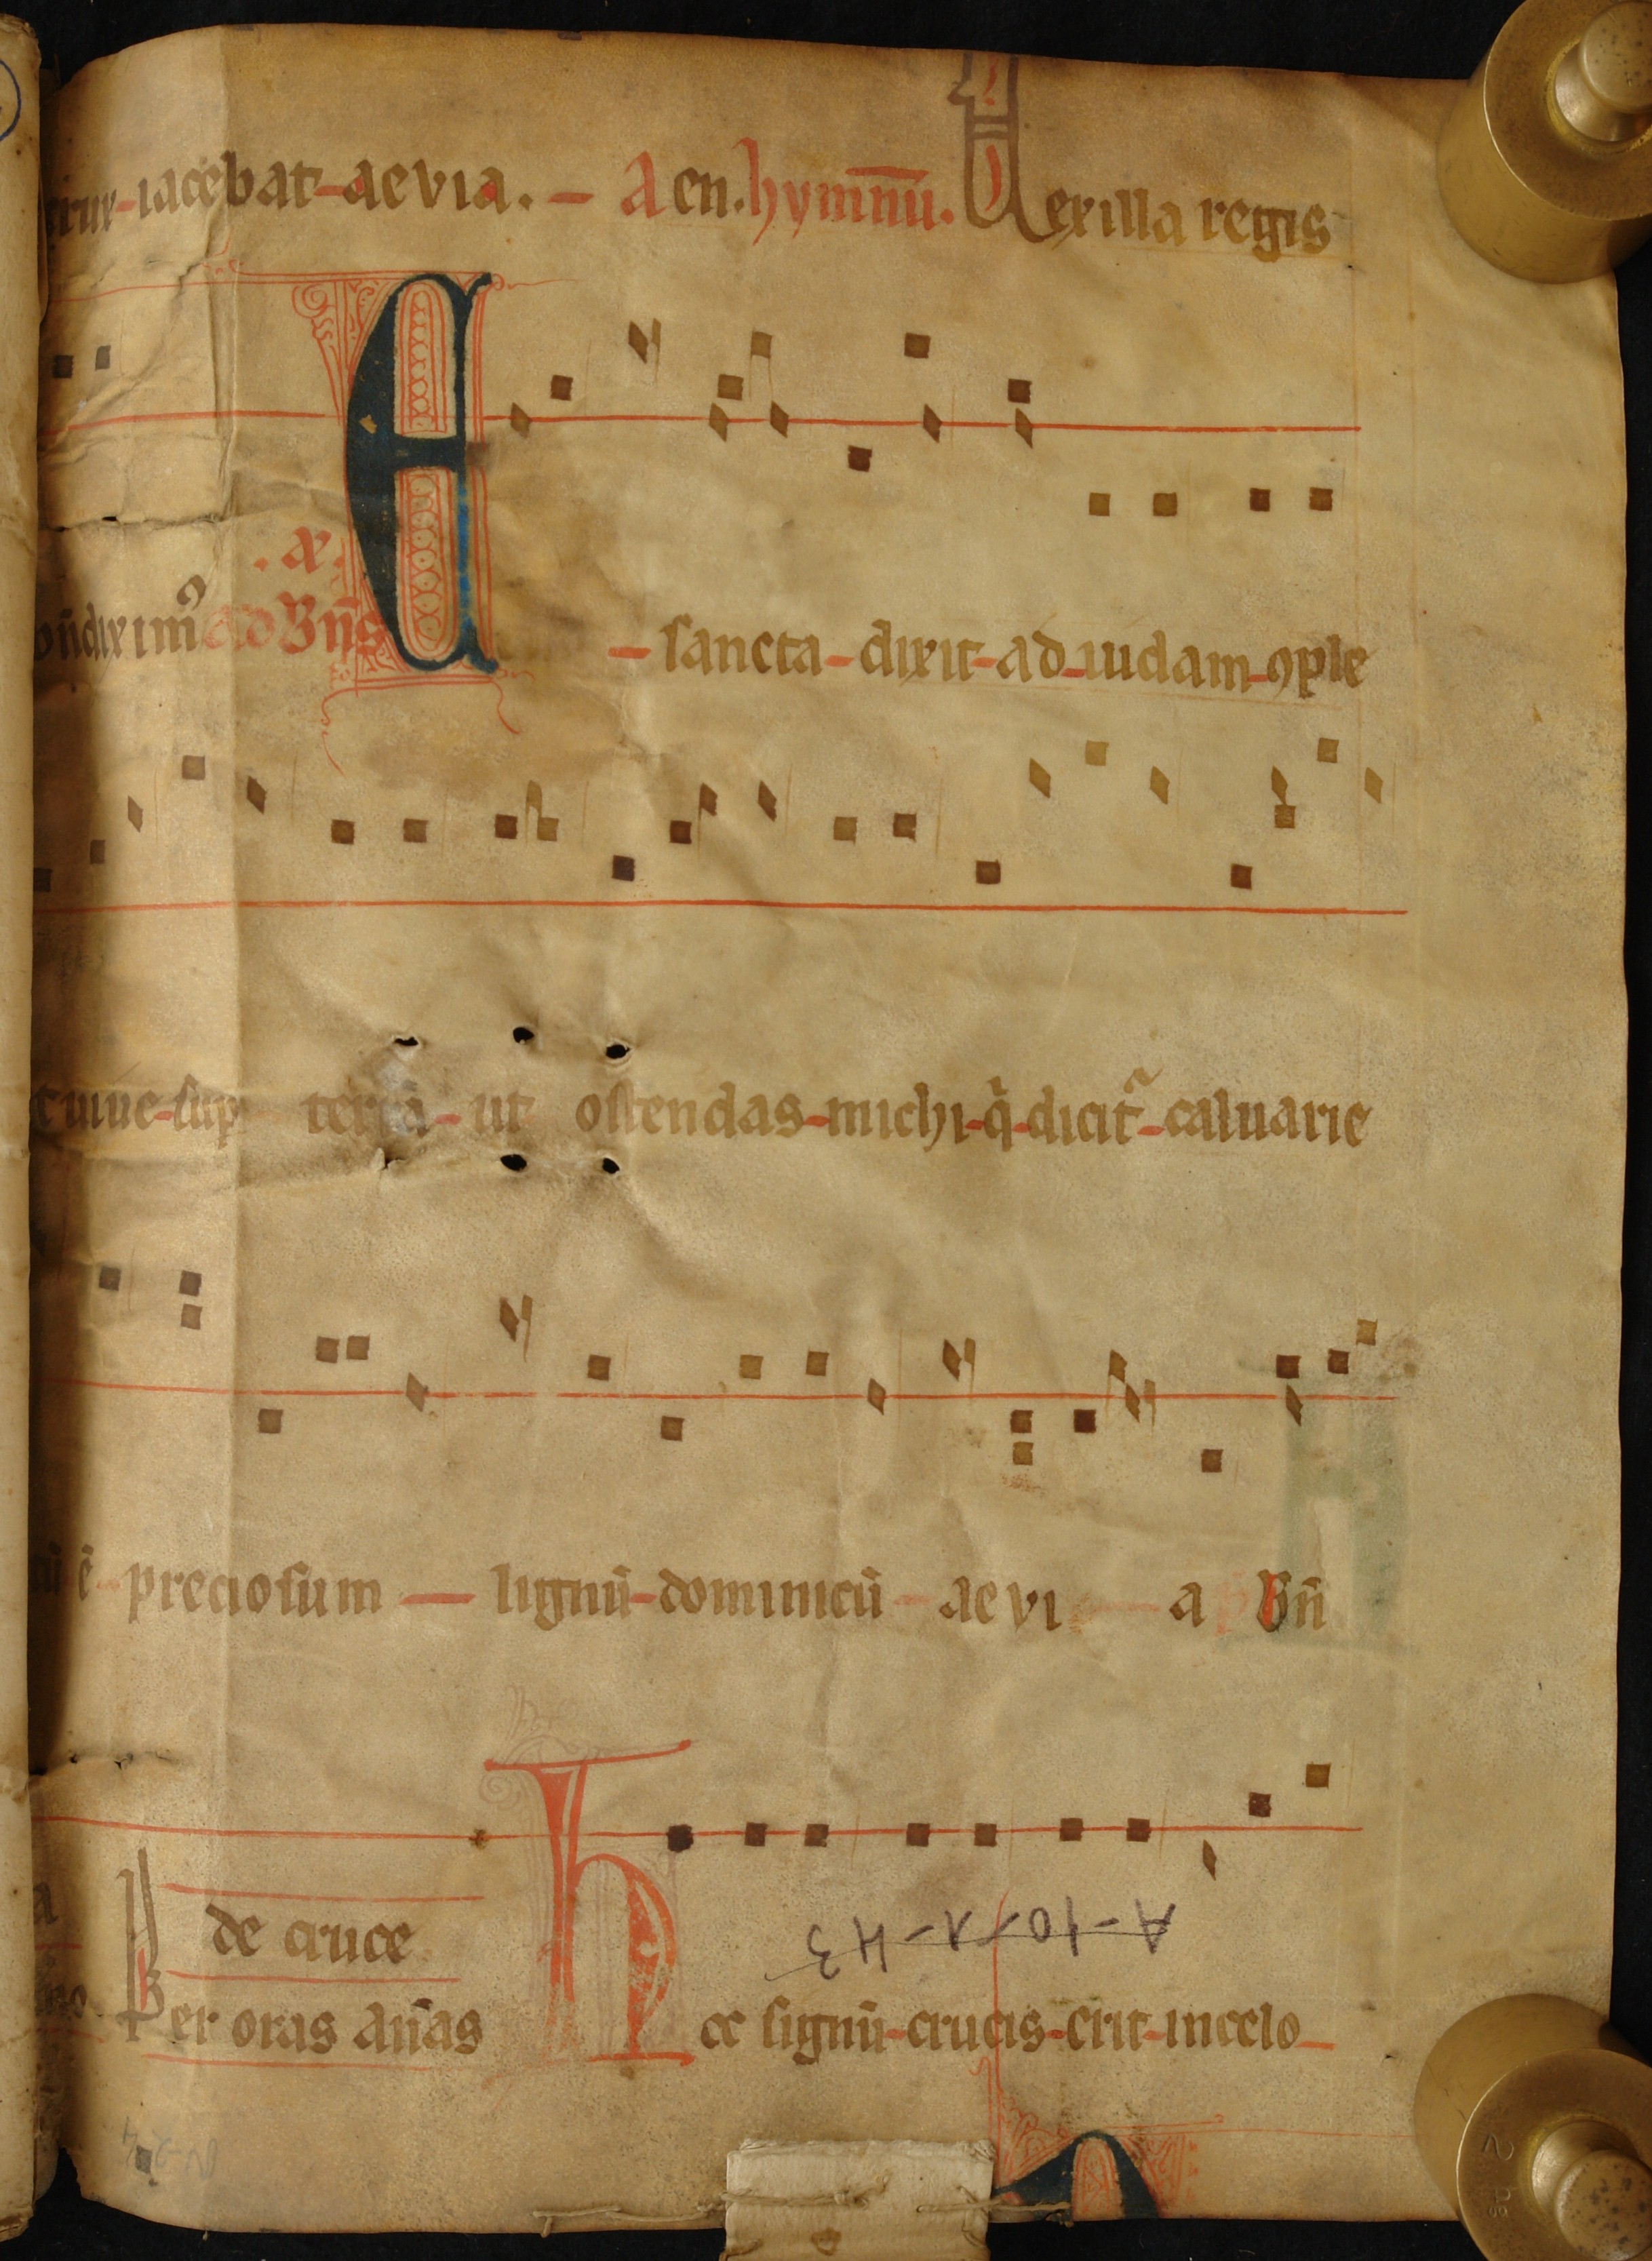 iacebat aevia. A en. hymnū. Uexilla regis
dixim⁹ ad Bn̄s E sancta dixit ad iudam ꝯple
uiue sup terrā ut ostendas michi q̇ dicit᷑ caluarie
ē preciosum lignū dominicū aevi a Bn̄
de cruce
Per oras an̄as hoc signū crucis erit in celo
A-10-1-43
N-24